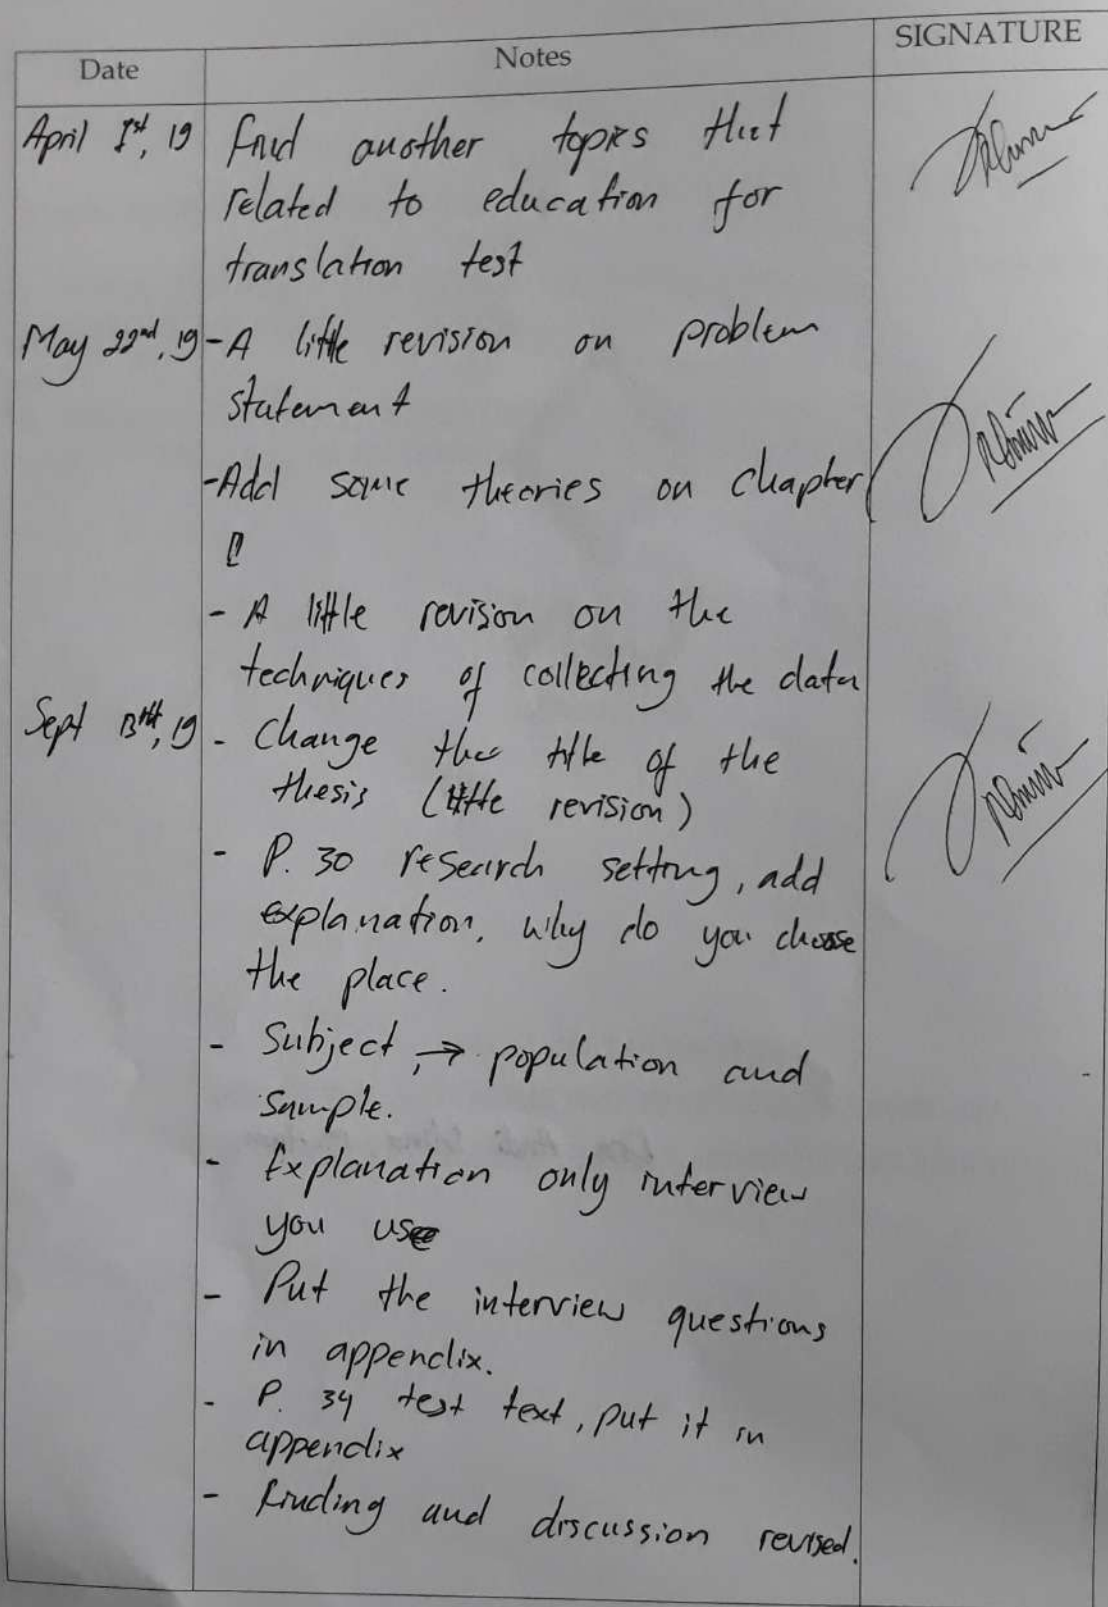 Date Notes SIGNATURE
April 1st, 19 Find another topics that
related to education for
translation test
May 22nd, 19 - A little revision on problem
statement
- Add some theories on Chapter
- A little revision on the
techniques of collecting the data
Sept 13th, 19 - Change the title of the
thesis (little revision)
- P. 30 research setting, add
explanation, why do you choose
the place.
- Subject, → population and
sample.
- Explanation only interview
you use
- Put the interview questions
in appendix.
- P. 34 test text, put it in
appendix
- Finding and discussion revised.